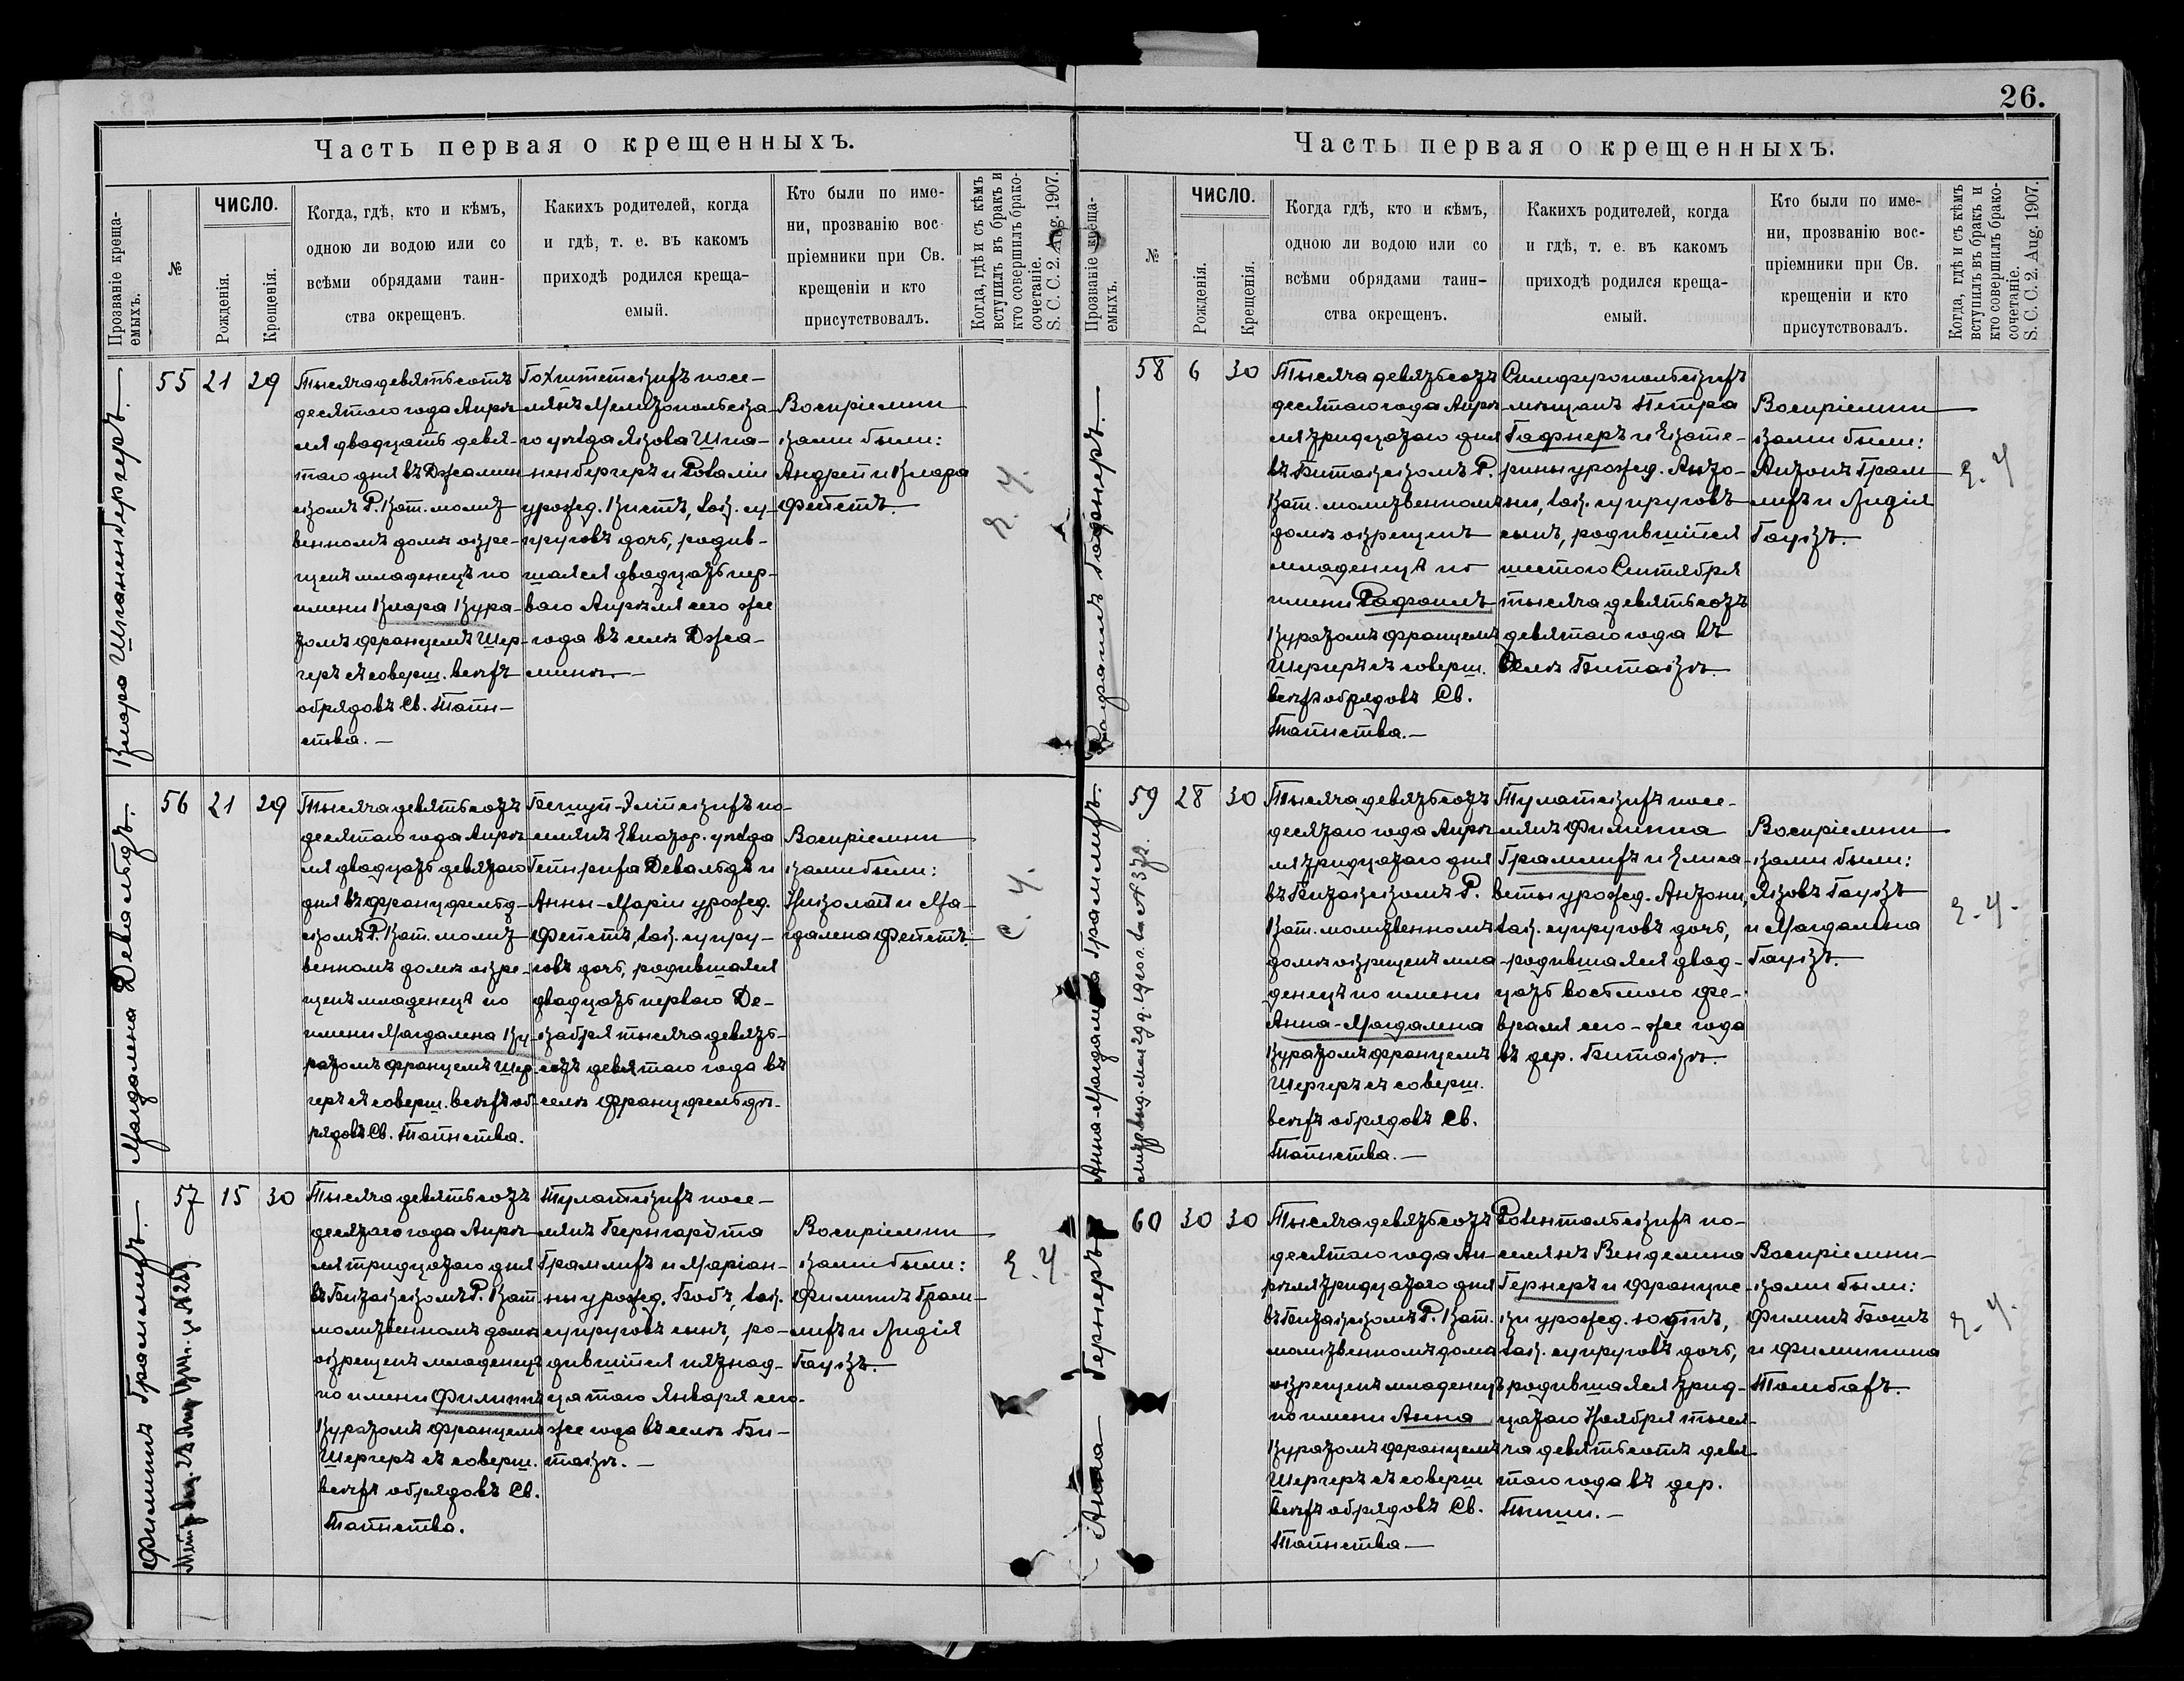 26.
Часть первая о крещенныхъ.
Прозваніе креща-
емыхъ.
№
ЧИСЛО.
Рожденія.
Крещенія.
Когда, гдѣ, кто и кѣмъ,
одною ли водою или со
всѣми обрядами таин-
ства окрещенъ.
Какихъ родителей, когда
и гдѣ, т. е. въ какомъ
приходѣ родился креща-
емый.
Кто были по име-
ни, прозванію вос-
пріемники при Св.
крещеніи и кто
присутствовалъ.
Когда, гдѣ и съ кѣмъ
вступилъ въ бракъ и
кто совершилъ брако-
сочетаніе.
S. C. C. 2. Aug. 1907.
Клара Шпаненбергеръ.
55 21 29
Тысяча девятьсотъ
десятаго года Апрѣ-
ля двадцать девя-
таго дня въ Джамин
скомъ Р. Кат. молит
венномъ домѣ окре-
щенъ младенецъ по
имени Клара Кура-
томъ Францемъ Шер-
геръ съ соверш. всѣхъ
обрядовъ Св. Таин-
ства.—
Гохштетскихъ посе-
лянъ Мелитопольска-
го уѣзда Якова Шпа-
ненбергеръ и Розаліи
урожд. Кистъ, зак. су-
пруговъ дочь, родив-
шаяся двадцать пер-
ваго Апрѣля сего же
года въ селѣ Джа-
минѣ.—
Воспріемни
ками были:
Андрей и Клара
Фейстъ.—
Магдалена Девальдъ.
56 21 29
Тысяча девятьсотъ
десятаго года Апрѣ-
ля двадцать девятаго
дня въ Францфельд-
скомъ Р. Кат. молит
венномъ домѣ окре-
щенъ младенецъ по
имени Магдалена Ку-
ратомъ Францемъ Шер-
геръ съ соверш. всѣхъ об-
рядовъ Св. Таинства.
Бешуи-Элійскихъ по-
селянъ Евпатор. уѣзда
Гейнриха Девальдъ и
Анны-Маріи урожд.
Фейстъ, зак. супру-
говъ дочь, родившаяся
двадцать перваго Де-
кабря тысяча девять-
сотъ девятаго года въ
селѣ Францфельдѣ.
Воспріемни
ками были:
Николай и Ма-
гдалена Фейстъ
Филиппъ Грамлихъ.
57 15 30
Тысяча девятьсотъ
десятаго года Апрѣ-
ля тридцатаго дня
въ Битакскомъ Р. Кат.
молитвенномъ домѣ
окрещенъ младенецъ
по имени Филиппъ
Куратомъ Францемъ
Шергеръ съ соверш.
всѣхъ обрядовъ Св.
Таинства.
Тулатскихъ посе-
лянъ Бернгардта
Грамлихъ и Маріан-
ны урожд. Бобъ, зак.
супруговъ сынъ, ро-
дившійся пятнад-
цатаго Января сего-
же года въ селѣ Би-
такѣ.—
Воспріемни
ками были:
Филиппъ Грам-
лихъ и Лидія
Гаукъ.
Часть первая о крещенныхъ.
Прозваніе креща-
емыхъ.
№
ЧИСЛО.
Рожденія.
Крещенія.
Когда гдѣ, кто и кѣмъ,
одною ли водою или со
всѣми обрядами таин-
ства окрещенъ.
Какихъ родителей, когда
и гдѣ, т. е. въ какомъ
приходѣ родился креща-
емый.
Кто были по име-
ни, прозванію вос-
пріемники при Св.
крещеніи и кто
присутствовалъ.
Когда, гдѣ и съ кѣмъ
вступилъ въ бракъ и
кто совершилъ брако-
сочетаніе.
S. C. C. 2. Aug. 1907.
Рафаилъ Гафнеръ.
58 6 30
Тысяча девятьсотъ
десятаго года Апрѣ-
ля тридцатаго дня
въ Битакскомъ Р.
Кат. молитвенномъ
домѣ окрещенъ
младенецъ по
имени Рафаилъ
Куратомъ Францемъ
Шергеръ съ соверш.
всѣхъ обрядовъ Св.
Таинства.—
Симферопольскихъ
мѣщанъ Петра
Гафнеръ и Екате-
рины урожд. Анто-
ни, зак. супруговъ
сынъ, родившійся
шестого Сентября
тысяча девятьсотъ
девятаго года въ
Селѣ Битакѣ.
Воспріемни
ками были:
Антонъ Грам
лихъ и Лидія
Гаукъ.
Анна-Магдалена Грамлихъ.
59 28 30
Тысяча девятьсотъ
десятаго года Апрѣ
ля тридцатаго дня
въ Битакскомъ Р.
Кат. молитвенномъ
домѣ окрещенъ мла-
денецъ по имени
Анна-Магдалена
Куратомъ Францемъ
Шергеръ съ соверш.
всѣхъ обрядовъ Св.
Таинства.—
Тулатскихъ посе-
лянъ Филиппа
Грамлихъ и Елиса-
веты урожд. Антони,
зак. супруговъ дочь,
родившаяся двад-
цать восьмого Фе-
враля сего-же года
въ дер. Битакѣ.
Воспріемни
ками были:
Яковъ Гаукъ
и Магдалина
Гаукъ.
Анна Гернеръ
60 30 30
Тысяча девятьсотъ
десятаго года Ап-
рѣля тридцатаго дня
въ Битакскомъ Р. Кат.
молитвенномъ домѣ
окрещенъ младенецъ
по имени Анна
Куратомъ Францемъ
Шергеръ съ соверш
всѣхъ обрядовъ Св.
Таинства—
Розентальскихъ по-
селянъ Венделина
Гернеръ и Францис-
ки урожд.
зак. супруговъ дочь,
родившаяся трид-
цатаго Ноября тыся-
ча девятьсотъ девя
таго года въ дер.
Воспріемни-
ками были:
Филиппъ Бошъ
и Филиппина